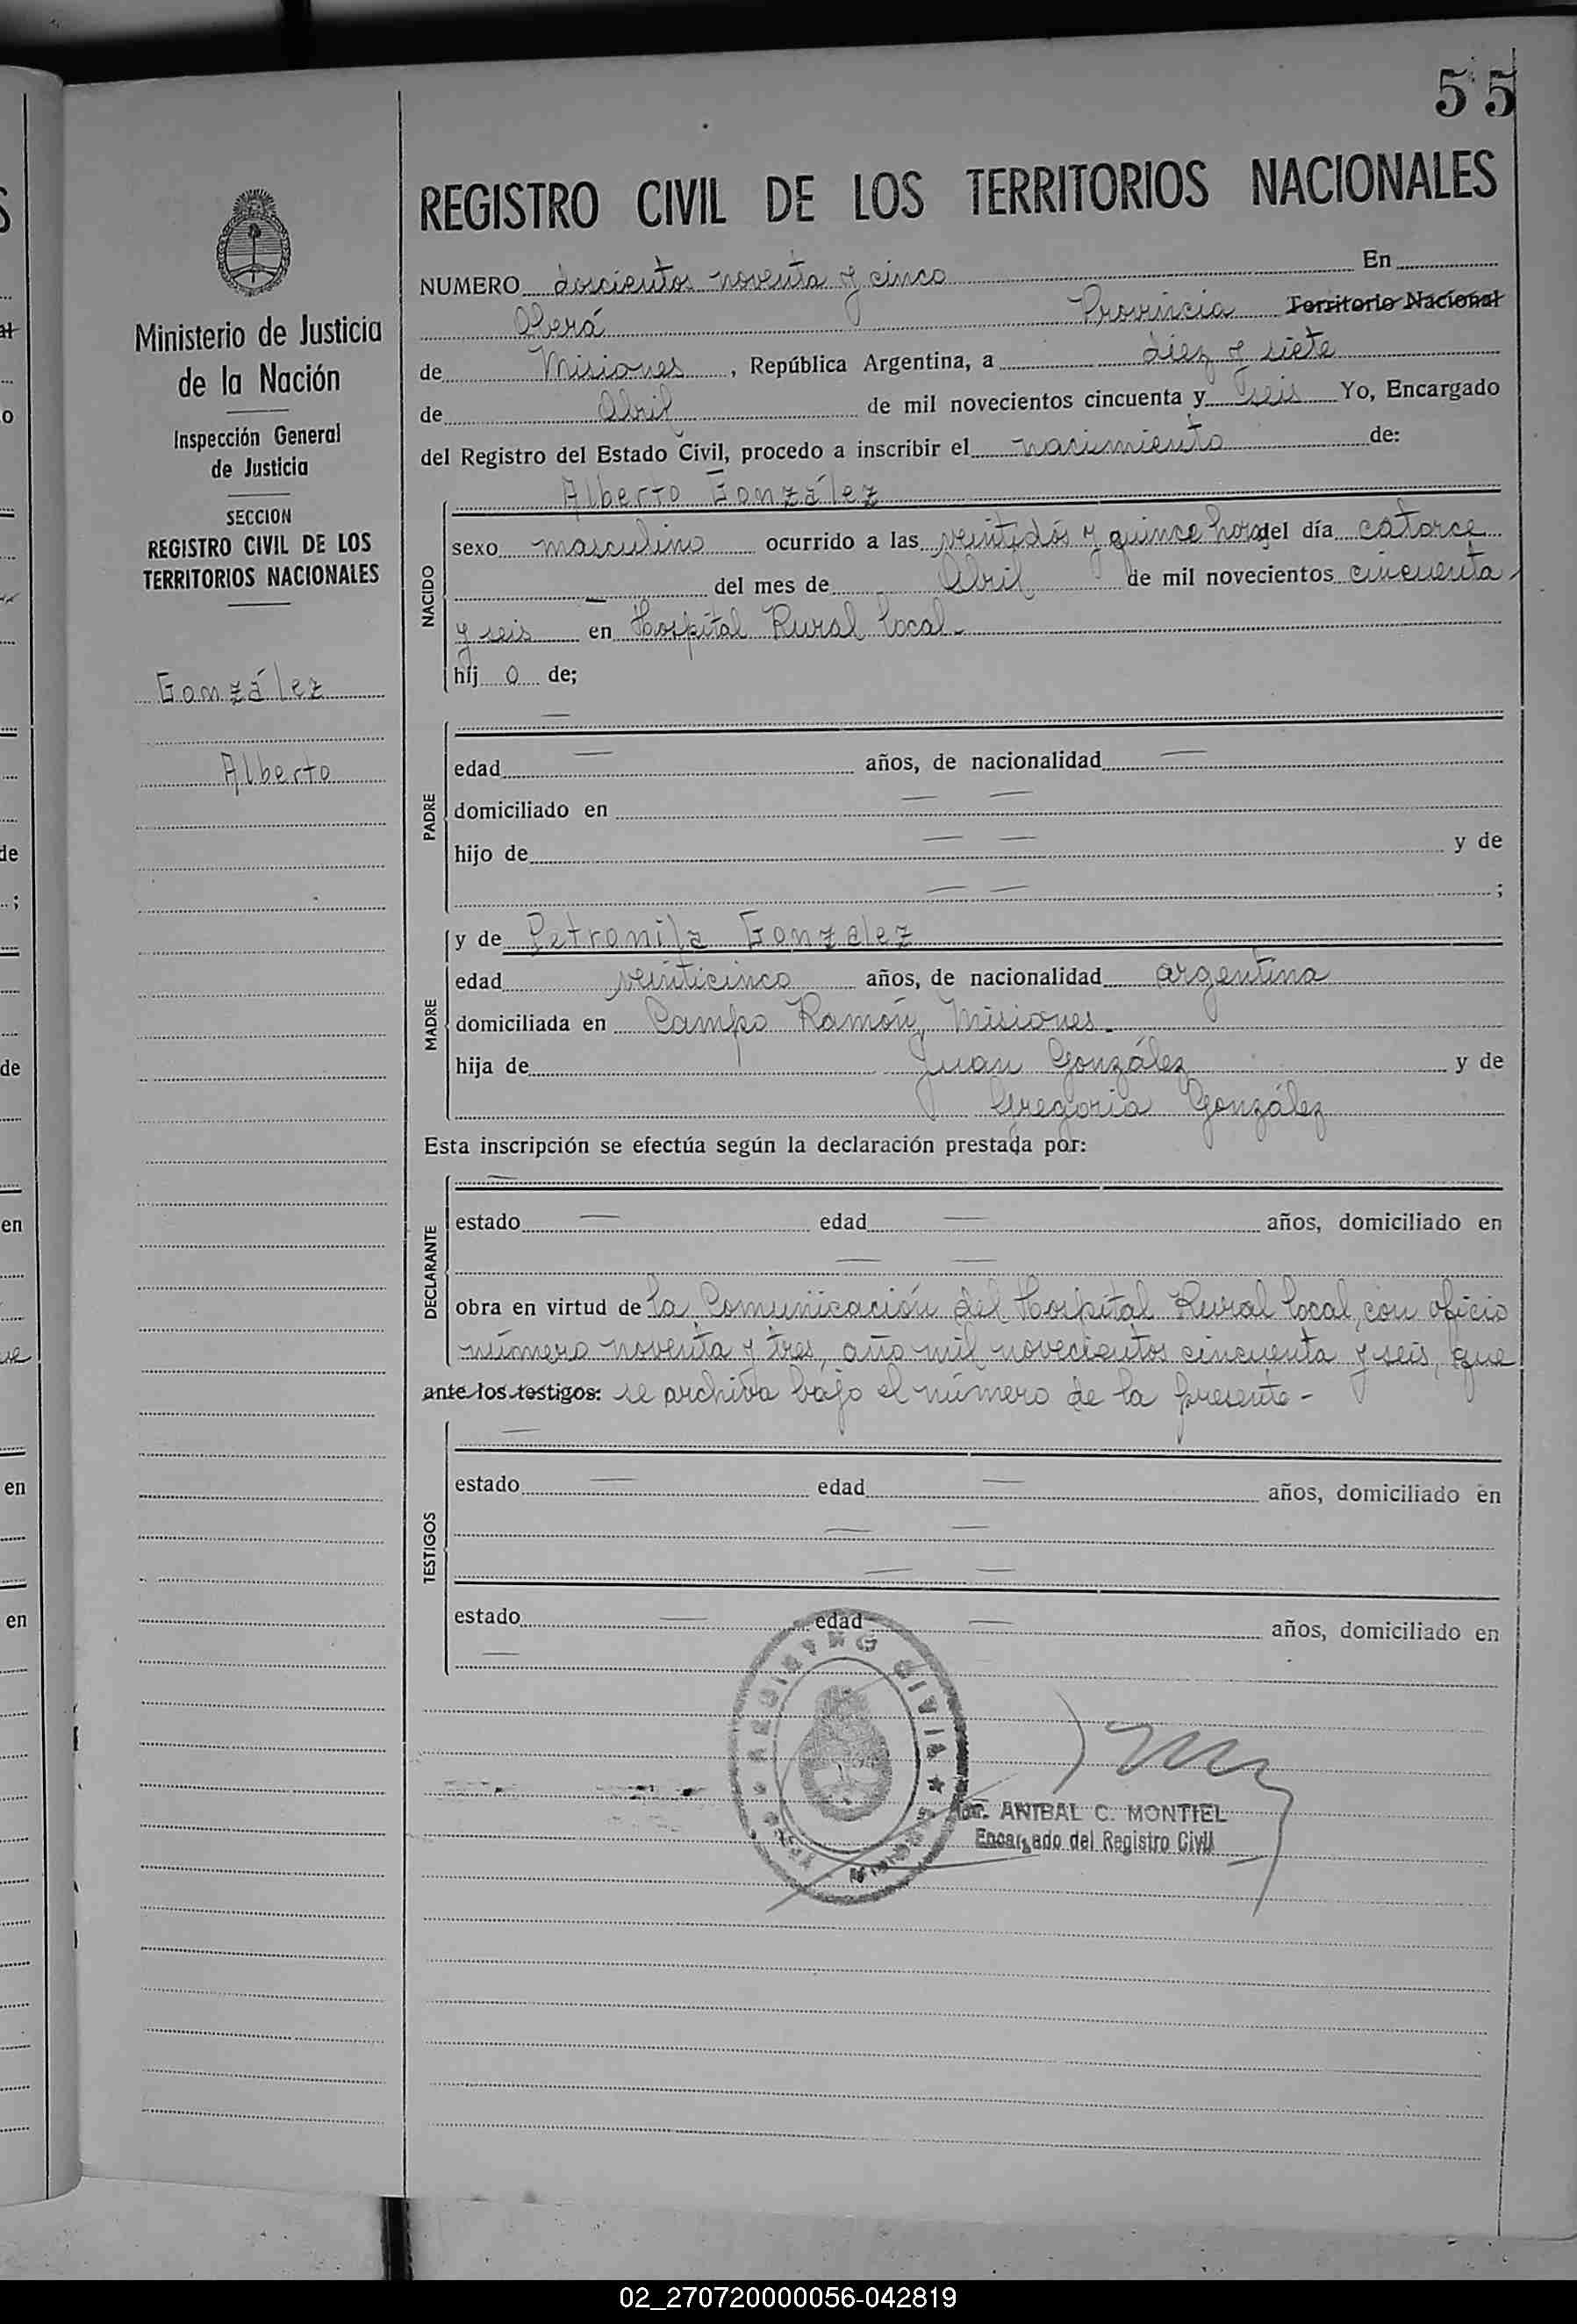 55
REGISTRO CIVIL DE LOS TERRITORIOS NACIONALES
Ministerio de Justicia
de la Nación
Inspección General
de Justicia
SECCION
REGISTRO CIVIL DE LOS
TERRITORIOS NACIONALES
González
Alberto
NUMERO doscientos noventa y cinco En
Oberá Provincia Territorio Nacional
de Misiones, República Argentina, a diez y siete
de Abril de mil novecientos cincuenta y seis Yo, Encargado
del Registro del Estado Civil, procedo a inscribir el nacimiento de:
Alberto González
NACIDO
sexo masculino ocurrido a las veintidós y quince horas del día catorce
— del mes de Abril de mil novecientos cincuenta
y seis en Hospital Rural local.-
hij o de;
—
PADRE
edad — años, de nacionalidad —
domiciliado en — —
hijo de — — y de
— — ;
MADRE
y de Petronila Gonzalez
edad veinticinco años, de nacionalidad argentina
domiciliada en Campo Ramón, Misiones.-
hija de Juan González y de
Gregoria González
Esta inscripción se efectúa según la declaración prestada por:
—
DECLARANTE
estado — edad — años, domiciliado en
— —
obra en virtud de la Comunicación del Hospital Rural local, con oficio
número noventa y tres, año mil novecientos cincuenta y seis, que
ante los testigos: se archiva bajo el número de la presente -
—
TESTIGOS
estado — edad — años, domiciliado en
— —
— —
estado — edad — años, domiciliado en
—
REGISTRO CIVIL
ANIBAL C. MONTIEL
Encargado del Registro Civil
al
o
de
;
de
en
en
en
02_270720000056-042819